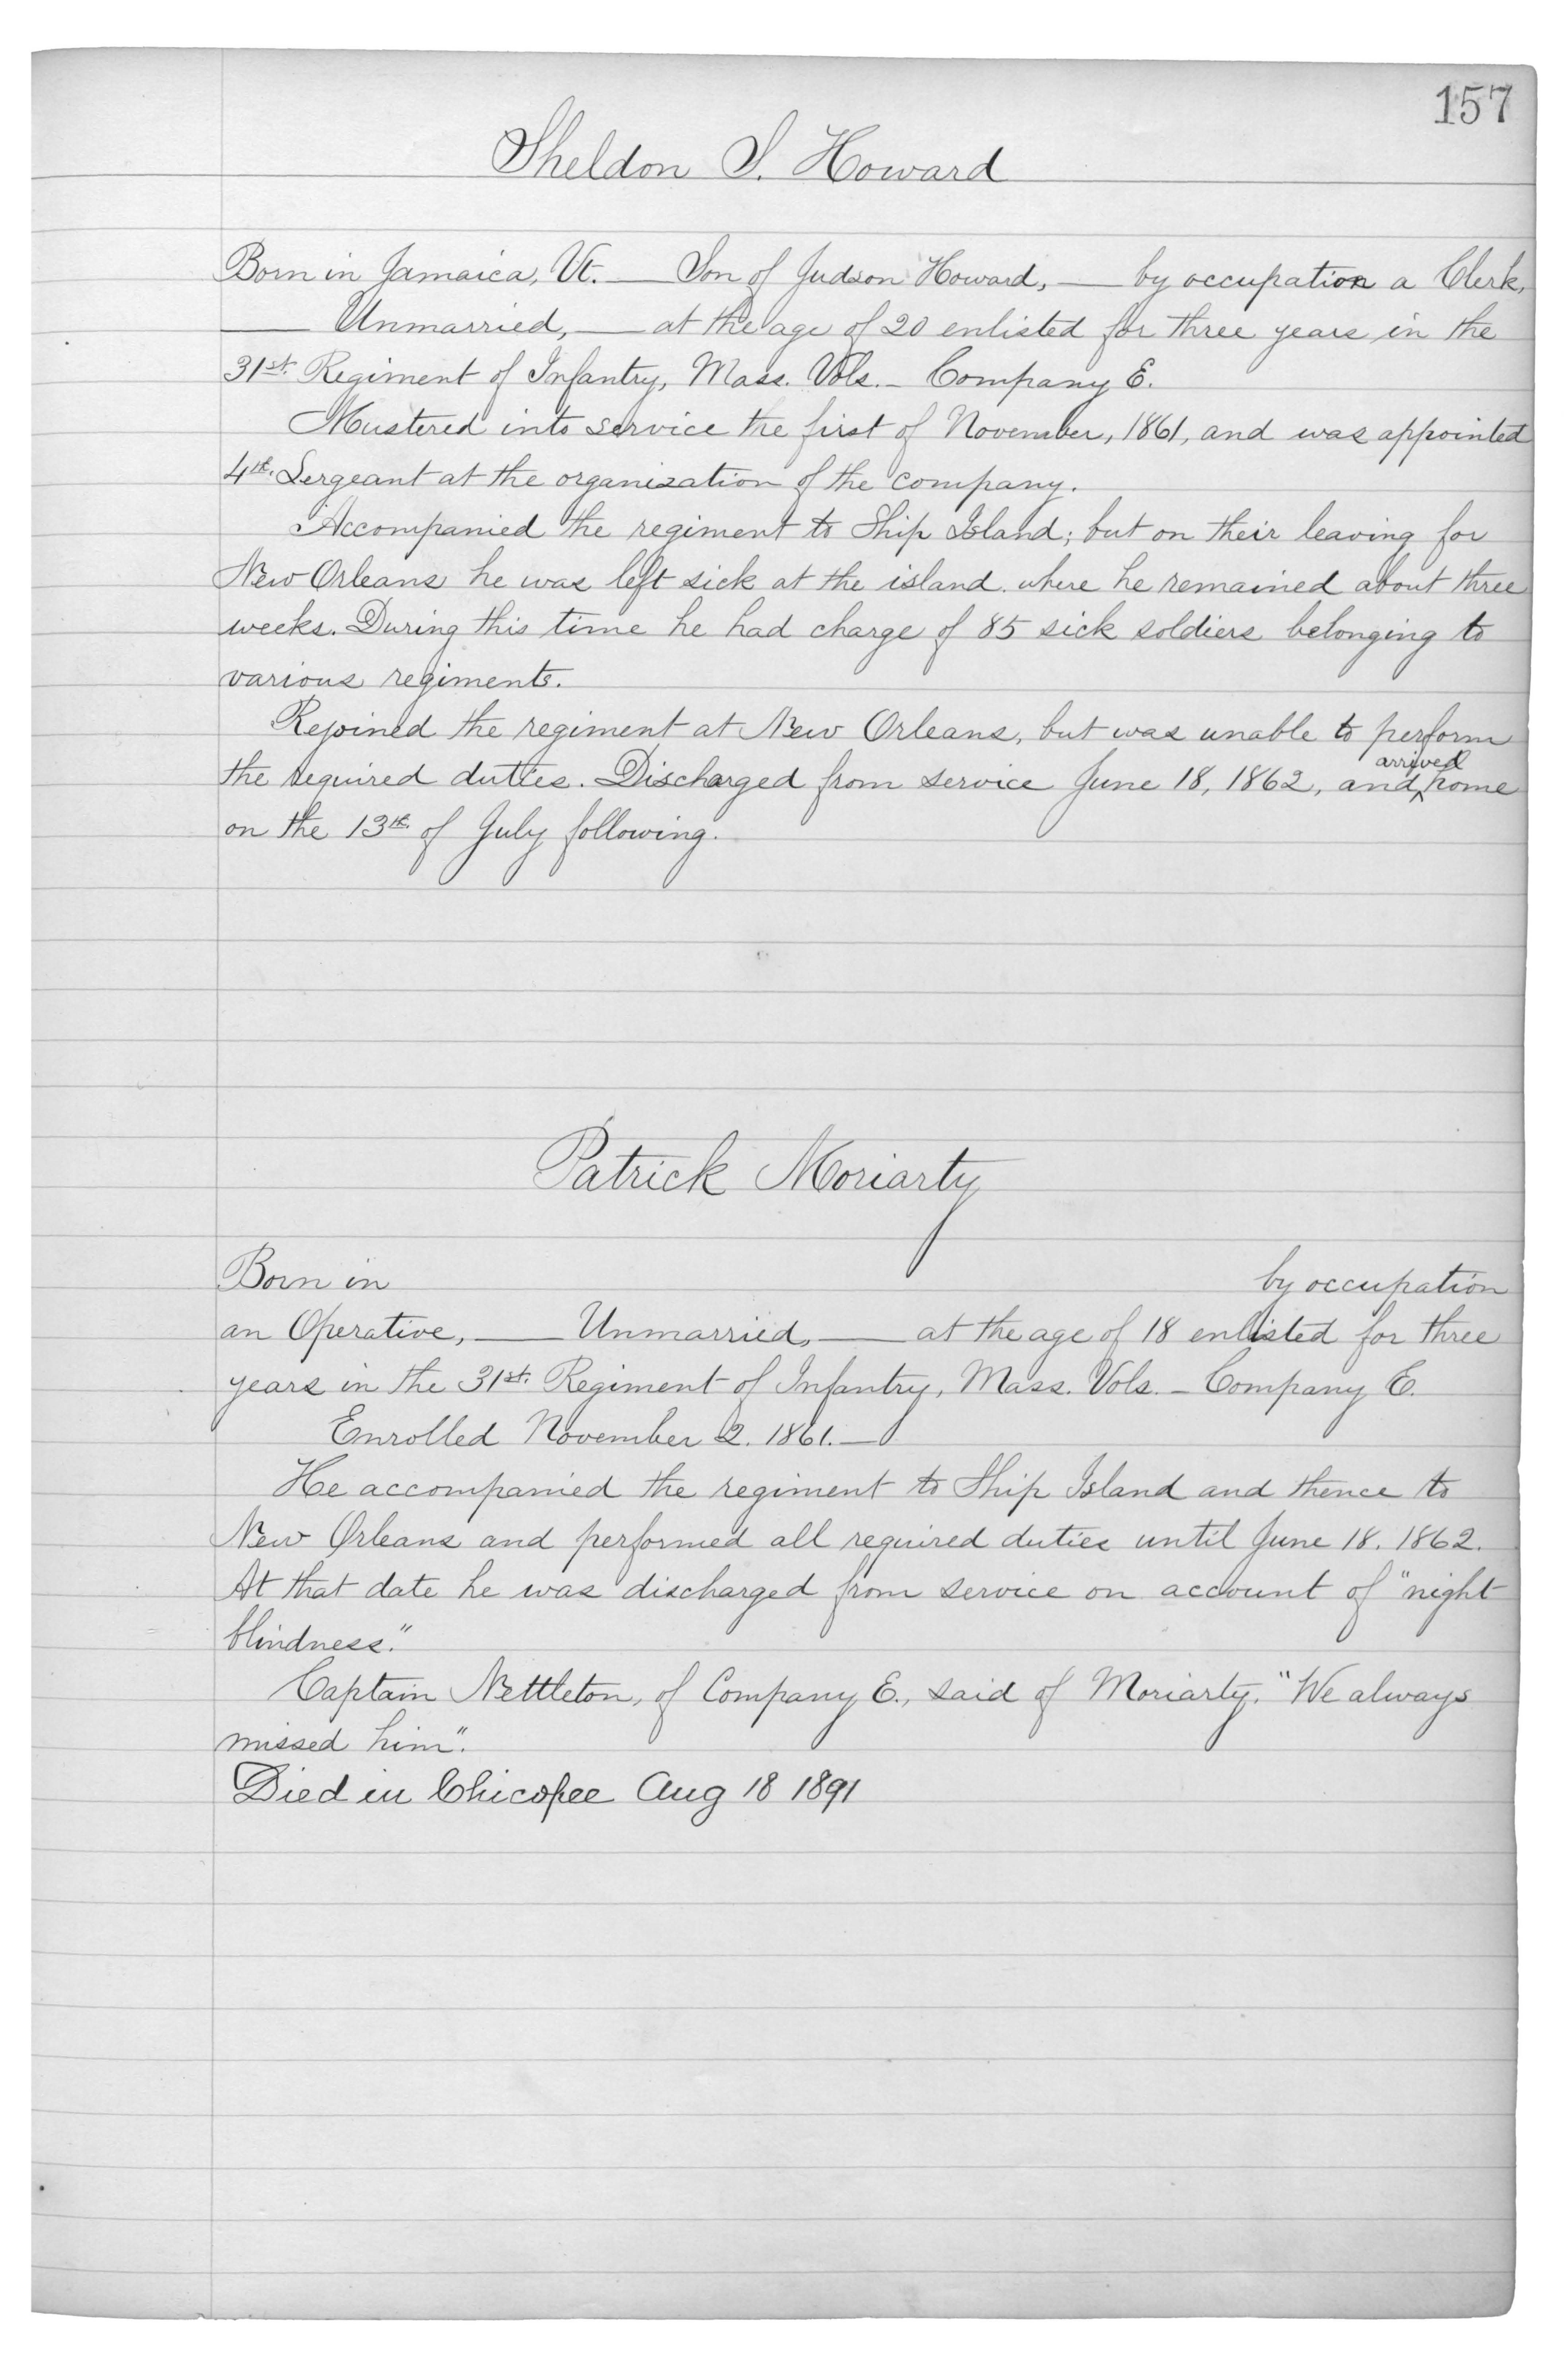 157
Sheldon S. Howard
Born in Jamaica, Vt. — Son of Judson Howard, — by occupation a Clerk,
— Unmarried, — at the age of 20 enlisted for three years in the
31st. Regiment of Infantry, Mass. Vols. – Company E.
Mustered into service the first of November, 1861, and was appointed
4th. Sergeant at the organization of the company.
Accompanied the regiment to Ship Island; but on their leaving for
New Orleans he was left sick at the island where he remained about three
weeks. During this time he had charge of 85 sick soldiers belonging to
various regiments.
Rejoined the regiment at New Orleans, but was unable to perform
the required duties. Discharged from service June 18, 1862, and arrived home
on the 13th. of July following.
Patrick Moriarty
Born in by occupation
an Operative, — Unmarried, — at the age of 18 enlisted for three
years in the 31st. Regiment of Infantry, Mass. Vols. – Company E.
Enrolled November 2. 1861. —
He accompanied the regiment to Ship Island and thence to
New Orleans and performed all required duties until June 18. 1862.
At that date he was discharged from service on account of "night
blindness."
Captain Nettleton, of Company E., said of Moriarty. "We always
missed him".
Died in Chicopee Aug 18 1891